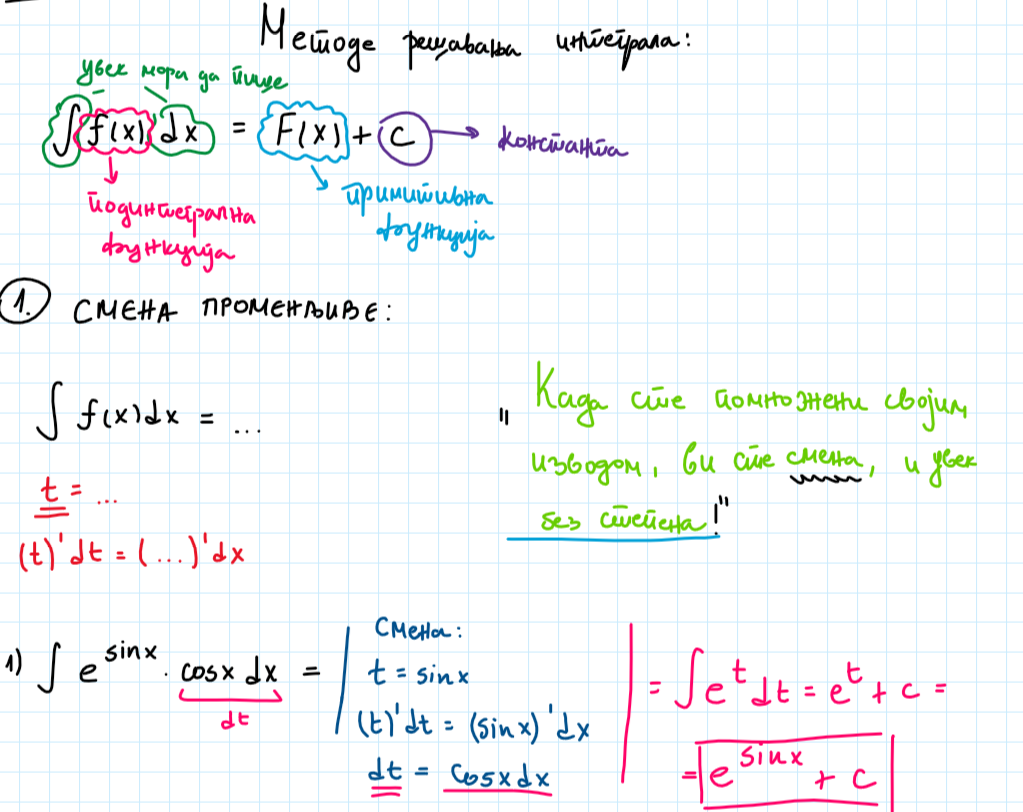 Методе решавања интеграла:
увек мора да пише
∫ f(x) dx = F(x) + c → константа
подинтегрална
функција
примитивна
функција
1. СМЕНА ПРОМЕНЉИВЕ:
∫ f(x)dx = ...
t = ...
(t)'dt = (...)'dx
"Када сте помножени својим
изводом, ви сте смена, и увек
без степена!"
1) ∫ e^sinx · cosx dx =
dt
Смена:
t = sinx
(t)'dt = (sinx)'dx
dt = cosxdx
= ∫e^t dt = e^t + c =
= e^sinx + c